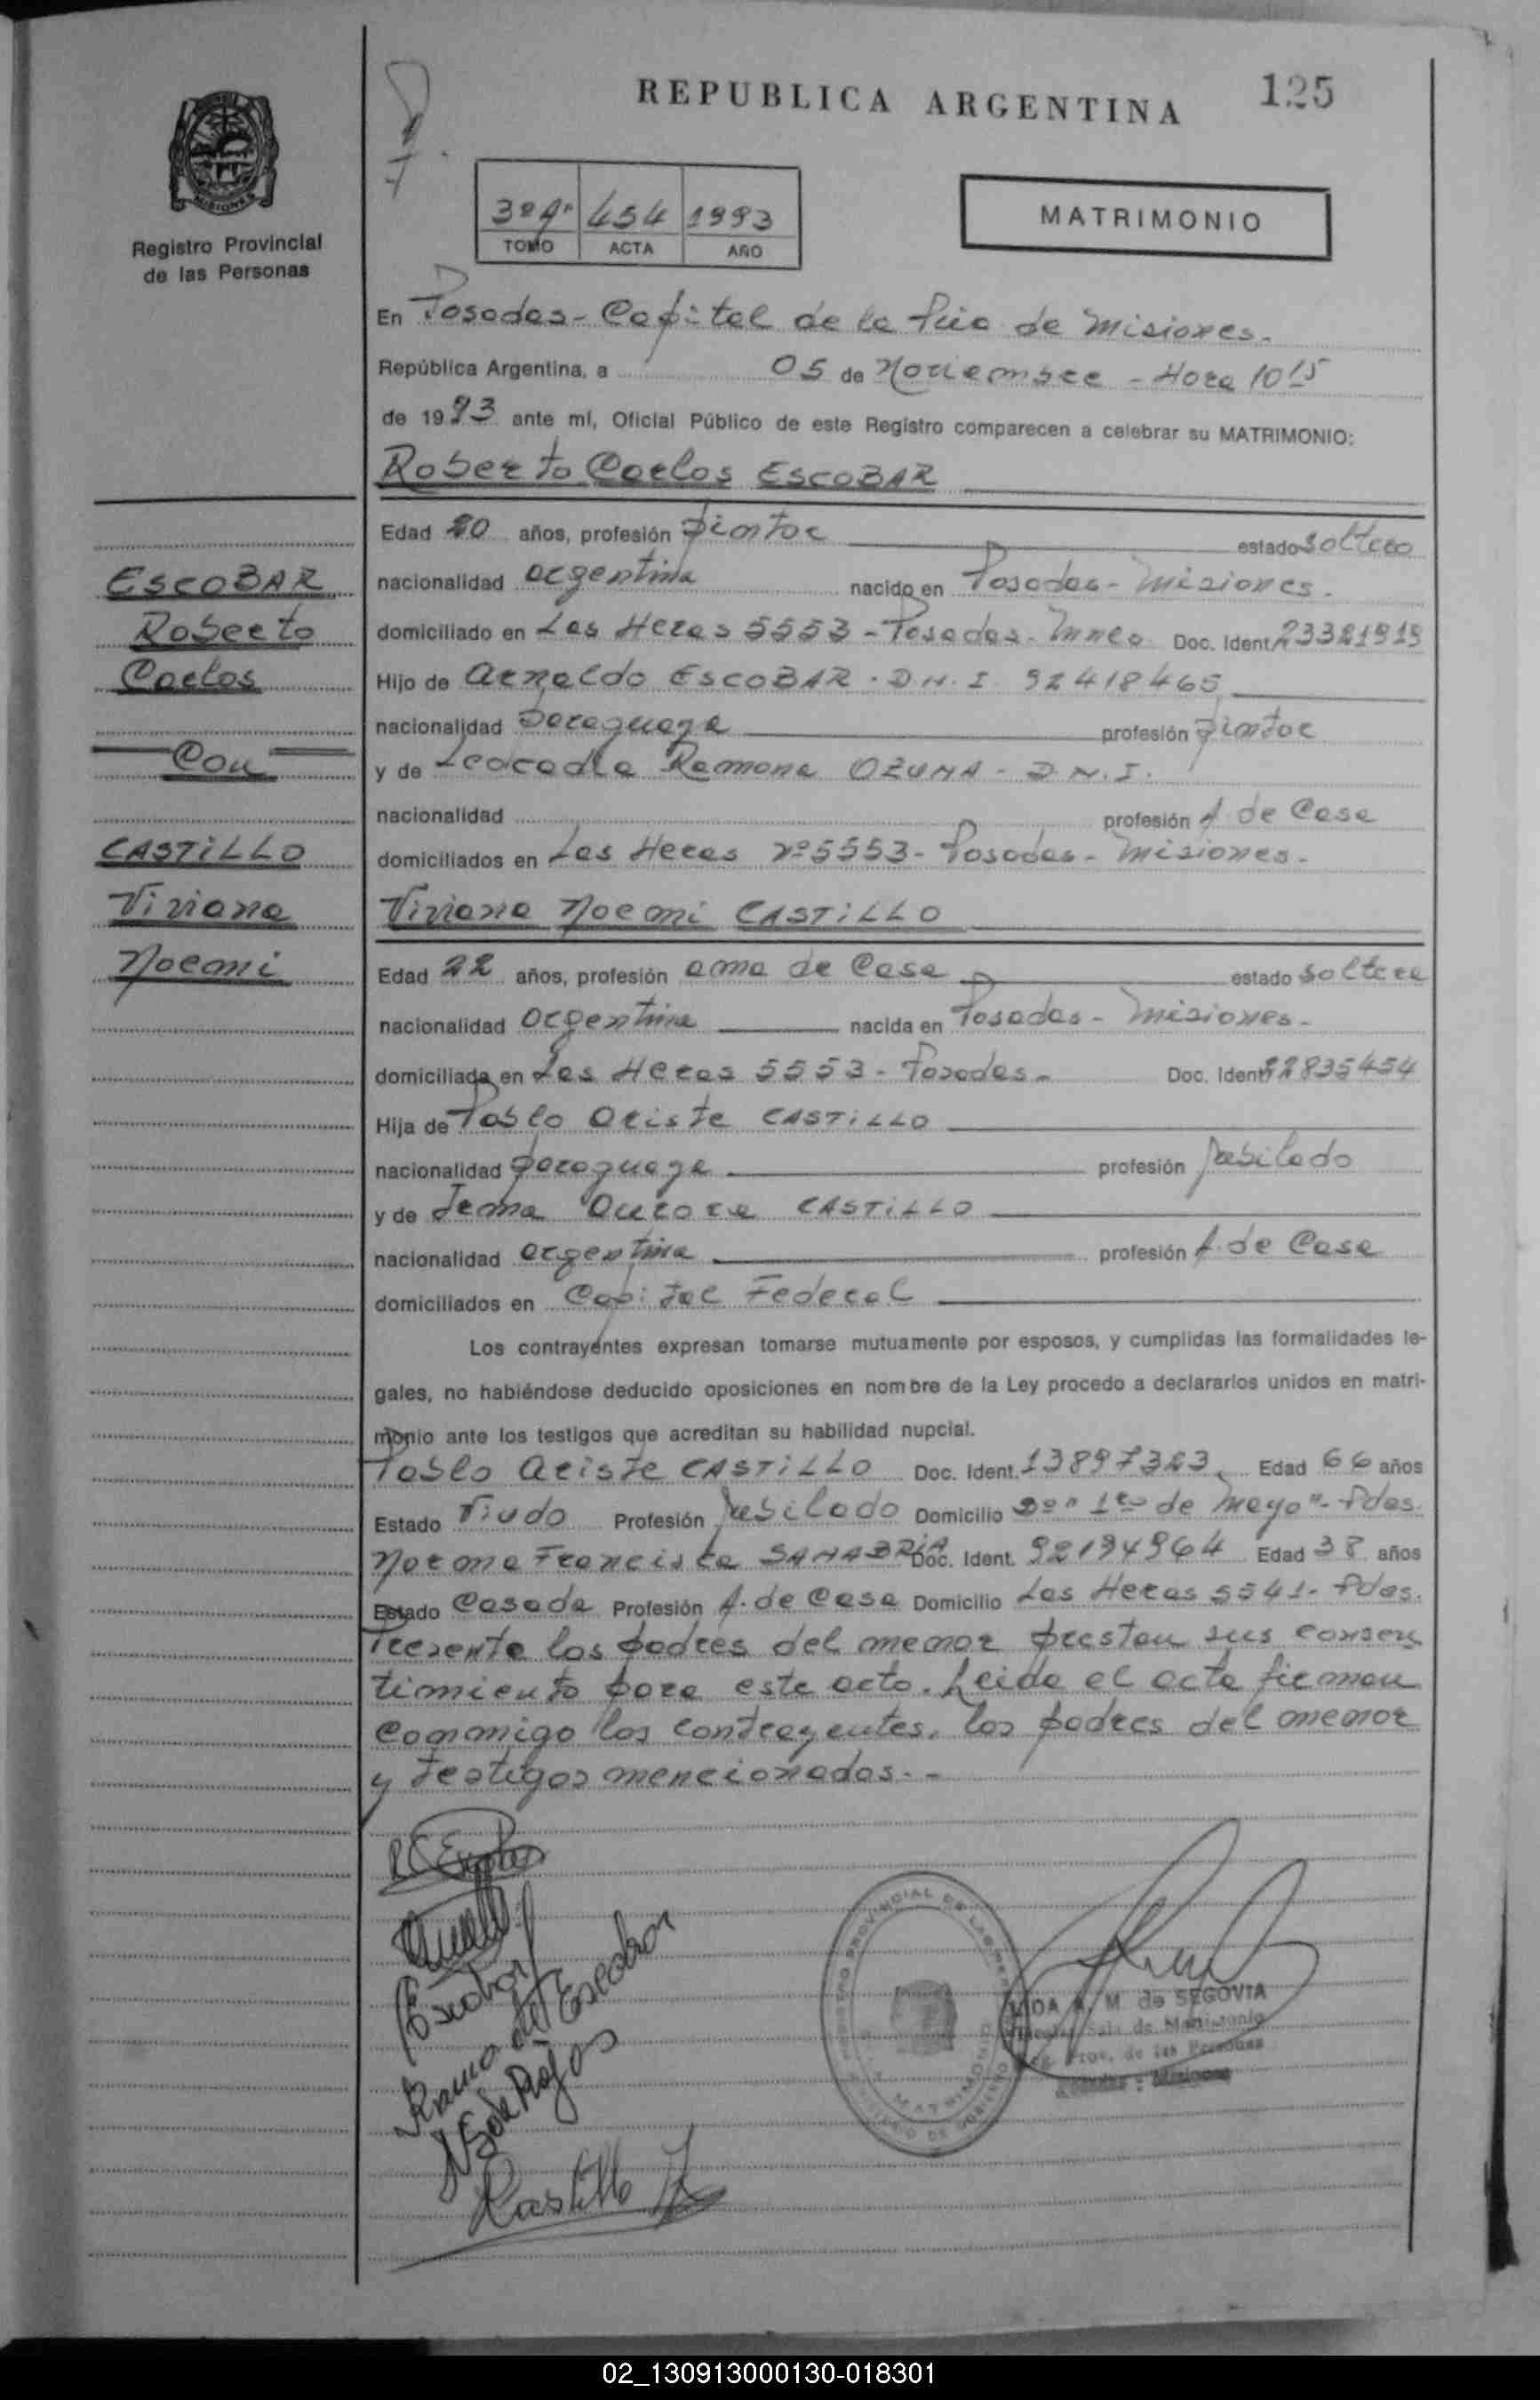 REPUBLICA ARGENTINA
125
MISIONES
Registro Provincial
de las Personas
3º "A" 454 1993
TOMO ACTA AÑO
MATRIMONIO
En Posadas - Capital de la Pcia de Misiones.
República Argentina, a 05 de Noviembre - Hora 10 15
de 1993 ante mí, Oficial Público de este Registro comparecen a celebrar su MATRIMONIO:
Roberto Carlos ESCOBAR
Edad 20 años, profesión pintor estado soltero
nacionalidad argentina nacido en Posadas - Misiones.
domiciliado en Las Heras 5553 - Posadas - Mnes Doc. Ident. 23381919
Hijo de Arnaldo ESCOBAR - D.N.I. 92418465
nacionalidad paraguaya profesión pintor
y de Leocadia Ramona OZUNA - D.N.I.
nacionalidad profesión A. de Casa
domiciliados en Las Heras Nº 5553 - Posadas - Misiones.
Viviana Noemi CASTILLO
Edad 22 años, profesión ama de Casa estado soltera
nacionalidad argentina nacida en Posadas - Misiones.
domiciliada en Las Heras 5553 - Posadas - Doc. Ident. 22835454
Hija de Pablo Ariste CASTILLO
nacionalidad paraguaya profesión Jubilado
y de Irma Aurora CASTILLO
nacionalidad argentina profesión A. de Casa
domiciliados en Capital Federal
Los contrayentes expresan tomarse mutuamente por esposos, y cumplidas las formalidades le-
gales, no habiéndose deducido oposiciones en nombre de la Ley procedo a declararlos unidos en matri-
monio ante los testigos que acreditan su habilidad nupcial.
Pablo Ariste CASTILLO Doc. Ident. 13897323 Edad 66 años
Estado Viudo Profesión Jubilado Domicilio Bº "1ro de Mayo" - Pdas.
Norma Francisca SANABRIA Doc. Ident. 92194964 Edad 38 años
Estado Casada Profesión A. de Casa Domicilio Las Heras 5541 - Pdas.
Presente los padres del menor prestan sus consen
timiento para este acto. Leida el acta firman
conmigo los contrayentes, los padres del menor
y testigos mencionados. -
ESCOBAR
Roberto
Carlos
Con
CASTILLO
Viviana
Noemi
R C Escobar
Escobar
Ramona de Escobar
Castillo
M. de SEGOVIA
Sala de Matrimonio
Prov. de las Personas
Posadas - Misiones
02_130913000130-018301